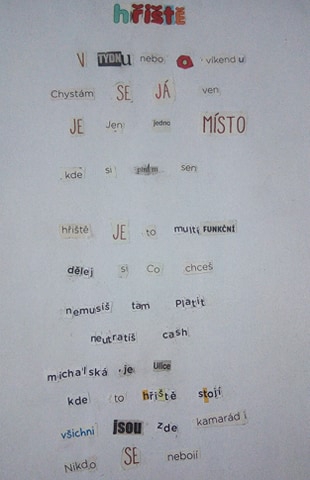 hřiště
V TÝDNU nebo o víkendu
Chystám SE JÁ ven
JE Jen jedno MÍSTO
kde si sen
hřiště JE to multi FUNKČNÍ
dělej si Co chceš
nemusíš tam Platit
neutratíš cash
michalská je Ulice
kde to hřiště stojí
všichni jsou zde kamarádi
Nikdo SE nebojí